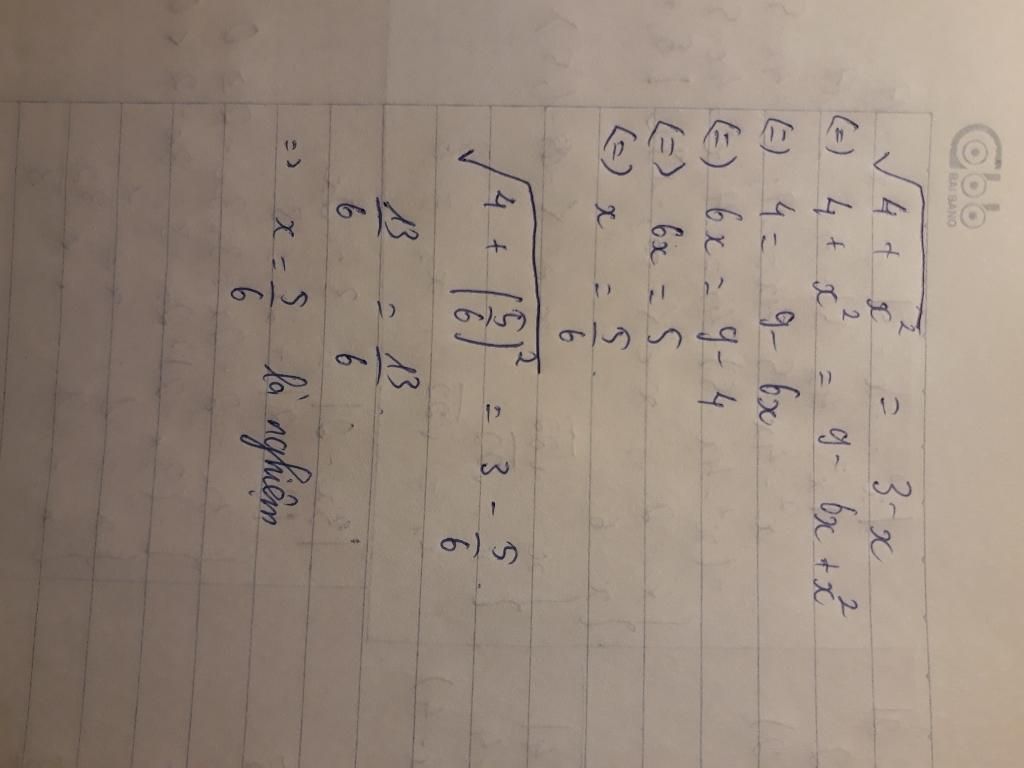 √(4 + x²) = 3 - x
(=) 4 + x² = 9 - 6x + x²
(=) 4 = 9 - 6x
(=) 6x = 9 - 4
(=) 6x = 5
(=) x = 5/6
√(4 + (5/6)²) = 3 - 5/6
13/6 = 13/6
=> x = 5/6 là nghiệm